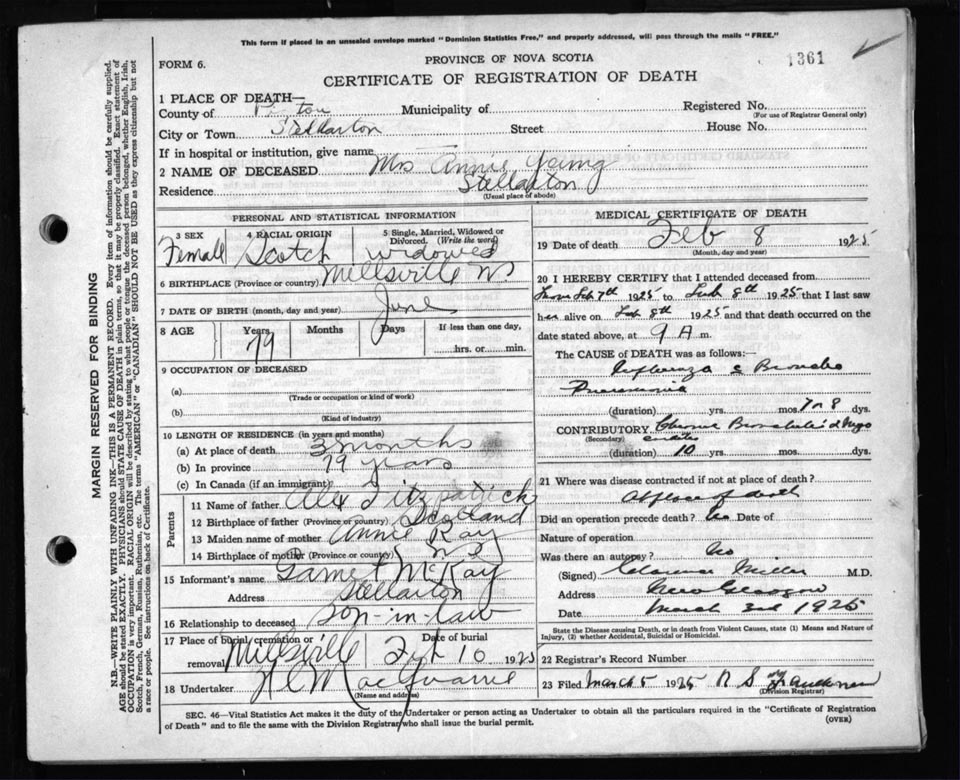 This form if placed in an unsealed envelope marked "Dominion Statistics Free," and properly addressed, will pass through the mails "FREE."
1361
FORM 6.
PROVINCE OF NOVA SCOTIA
CERTIFICATE OF REGISTRATION OF DEATH
1 PLACE OF DEATH—
County of Pictou Municipality of Registered No.
(For use of Registrar General only)
City or Town Stellarton Street House No.
If in hospital or institution, give name
2 NAME OF DECEASED Mrs Annie Young
Residence Stellarton
(Usual place of abode)
PERSONAL AND STATISTICAL INFORMATION
3 SEX 4 RACIAL ORIGIN 5 Single, Married, Widowed or Divorced. (Write the word)
Female Scotch widowed
6 BIRTHPLACE (Province or country) Millsville NS
7 DATE OF BIRTH (month, day and year) June
8 AGE Years Months Days If less than one day,
79 hrs. or min.
9 OCCUPATION OF DECEASED
(a)
(Trade or occupation or kind of work)
(b)
(Kind of industry)
10 LENGTH OF RESIDENCE (in years and months)
(a) At place of death 3 months
(b) In province 79 years
(c) In Canada (if an immigrant)
Parents
11 Name of father Alex Fitzpatrick
12 Birthplace of father (Province or country) Scotland
13 Maiden name of mother Annie Ray
14 Birthplace of mother (Province or country) N S
15 Informant's name Garnet McKay
Address Stellarton
16 Relationship to deceased son-in-law
17 Place of burial, cremation or removal Millsville Date of burial Feb 10 1925
18 Undertaker MacQuarrie
(Name and address)
MEDICAL CERTIFICATE OF DEATH
19 Date of death Feb 8 1925
(Month, day and year)
20 I HEREBY CERTIFY that I attended deceased from
From Feb 7th 1925 to Feb 8th 1925 that I last saw
her alive on Feb 8th 1925 and that death occurred on
date stated above, at 9 A m.
The CAUSE OF DEATH was as follows:
Influenza & Broncho
Pneumonia
(duration) yrs. mos. 7 or 8 dys.
CONTRIBUTORY Chronic Bronchitis & Myo
(Secondary) carditis
(duration) 10 yrs. mos. dys.
21 Where was disease contracted if not at place of death?
At place of death
Did an operation precede death? No Date of
Nature of operation
Was there an autopsy? No
(Signed) Clarence Miller M.D.
Address New Glasgow
Date March 3rd 1925
State the Disease causing Death, or in death from Violent Causes, state (1) Means and Nature of Injury, (2) whether Accidental, Suicidal or Homicidal.
22 Registrar's Record Number
23 Filed March 5 1925 R S
(Division Registrar)
SEC. 46—Vital Statistics Act makes it the duty of the Undertaker or person acting as Undertaker to obtain all the particulars required in the "Certificate of Registration
of Death" and to file the same with the Division Registrar who shall issue the burial permit. (OVER)
MARGIN RESERVED FOR BINDING
N.B.—WRITE PLAINLY WITH UNFADING INK—THIS IS A PERMANENT RECORD. Every item of information should be carefully supplied.
AGE should be stated EXACTLY. PHYSICIANS should STATE CAUSE OF DEATH in plain terms, so that it may be properly classified. Exact statement of
OCCUPATION is very important. RACIAL ORIGIN will be described by stating to what people or tongue the deceased person belonged, whether English, Irish,
Scotch, French, German, Russian, Ruthenian, etc. The terms "AMERICAN" or "CANADIAN" SHOULD NOT BE USED as they express citizenship but not
a race or people. See instructions on back of Certificate.